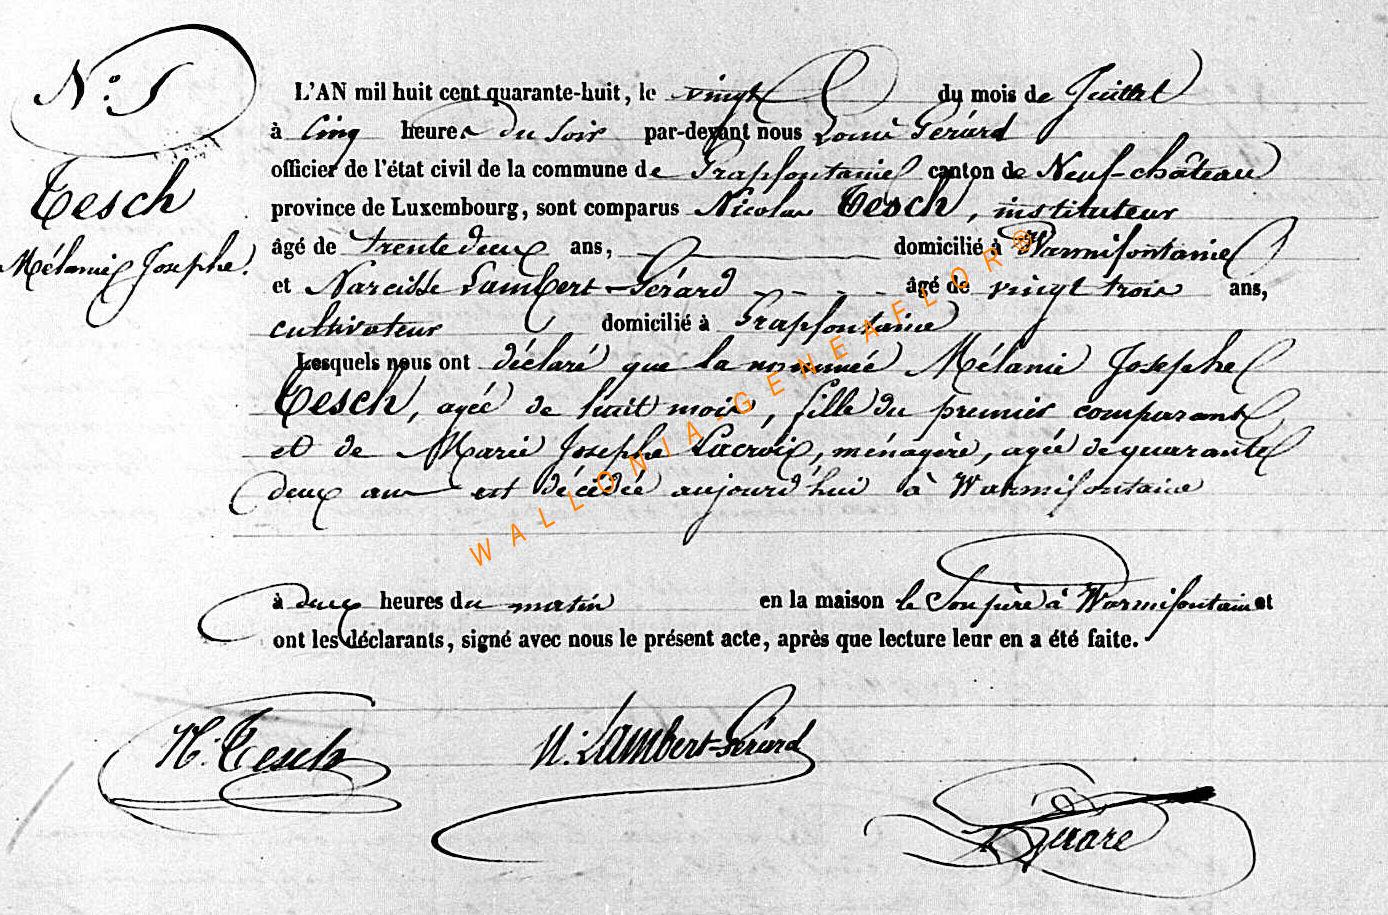 N° 5
Tesch
Mélanie Josephe.
L'AN mil huit cent quarante-huit, le vingt du mois de Juillet
à cinq heures du soir par-devant nous Louis Gérard
officier de l'état civil de la commune de Grapfontaine canton de Neuf-château
province de Luxembourg, sont comparus Nicolas Tesch, instituteur
âgé de trente deux ans, domicilié à Warmifontaine
et Narcisse Lambert-Gérard - - - - âgé de vingt trois ans,
cultivateur domicilié à Grapfontaine
Lesquels nous ont déclaré que la nommée Mélanie Josephe
Tesch, agée de huit mois, fille du premier comparant
et de Marie Josephe Lacroix, ménagère, agée de quarante
deux ans est décédée aujourd'hui à Warmifontaine
à deux heures du matin en la maison de son père à Warmifontaine et
ont les déclarants, signé avec nous le présent acte, après que lecture leur en a été faite.
N. Tesch N. Lambert-Gérard
L Gérard
WALLONIA-GENEAFLOR®